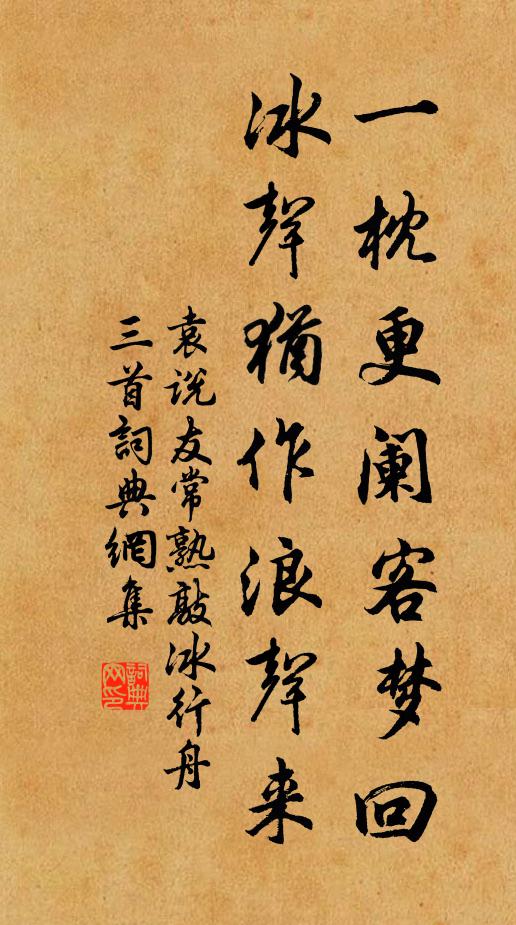 一枕更阑客梦回
冰聲猶作浪聲来
袁说友常熟敲冰行舟
三首詞典網集
詞典网印